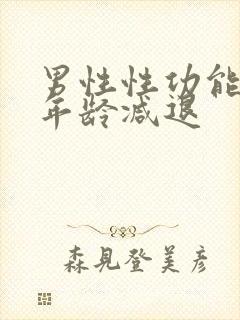 男性性功能
年龄减退
森見登美彦